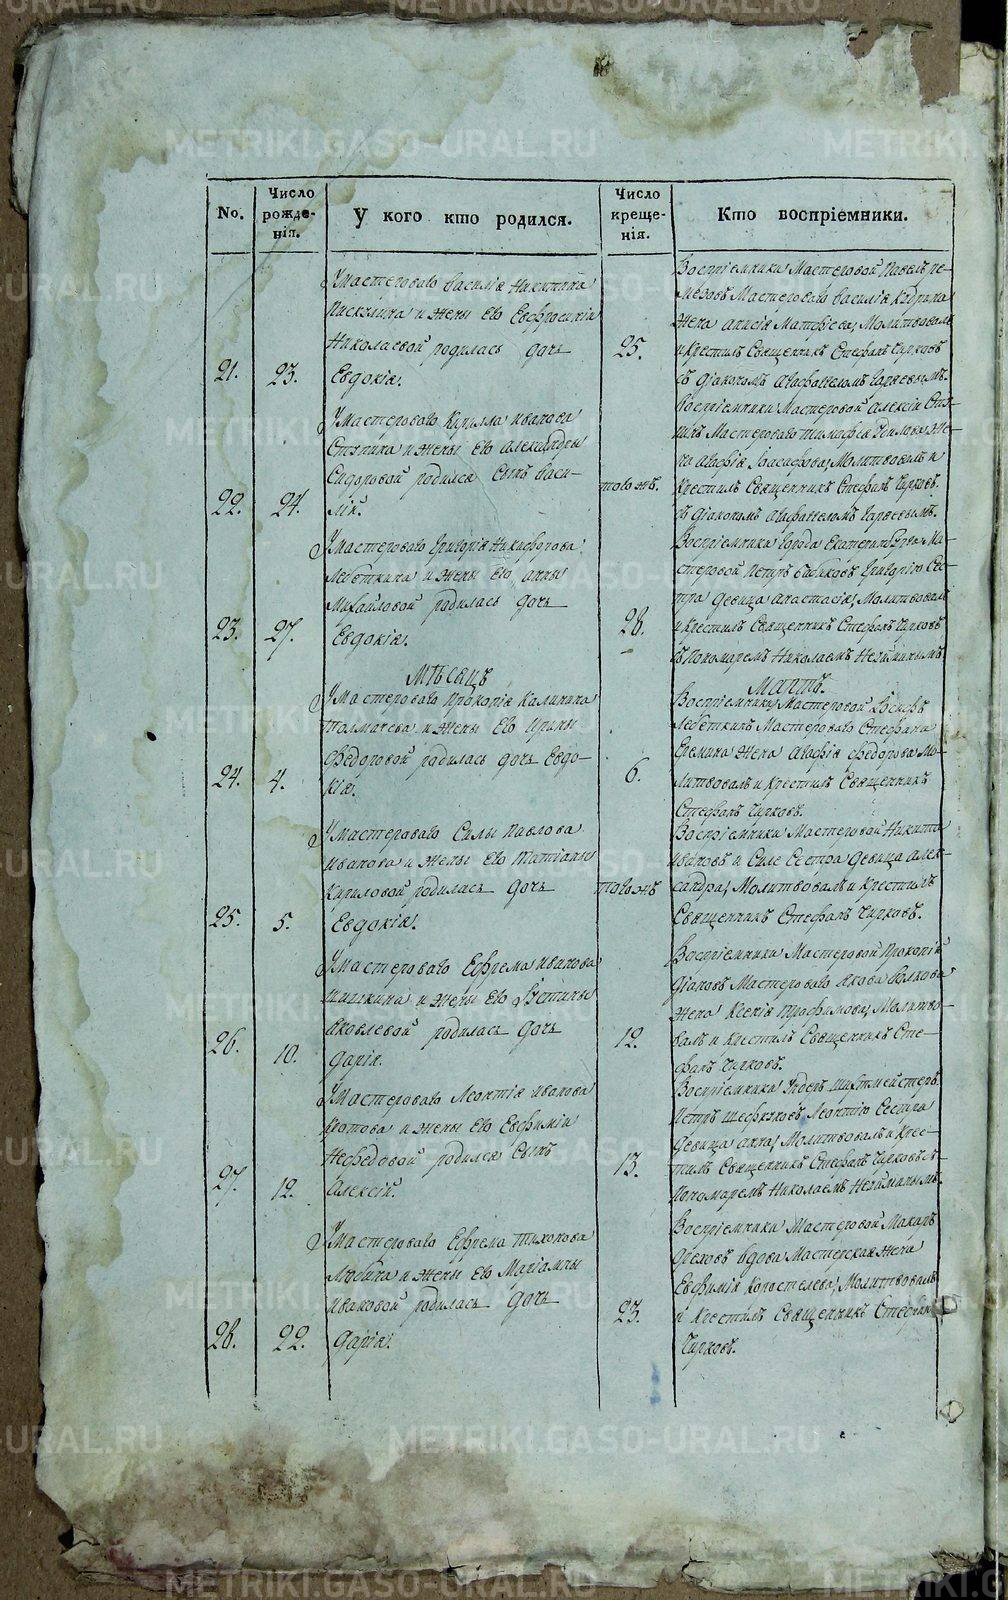 No.
Число рожде-нія.
У кого кто родился.
Число креще-нія.
Кто воспріемники.
21.
23.
У мастероваго Василія Никитина
Пискулина и жены его Евфросиніи
Николаевой родилась дочь
Евдокія.
25.
Воспріемники Мастеровой Павелъ Ре-
мезовъ Мастероваго Василія Кирина
жена Матфіева, Молитвовалъ
и крестилъ Священникъ Стефанъ Чирковъ
съ діакономъ Агафангеломъ
22.
24.
У мастероваго Кирилла Иванова
Ступина и жены его Александры
Сидоровой родился сынъ Васи-
лій.
тогожъ.
Воспріемники Мастеровой Алексій Сту-
пинъ Мастероваго Тимофея Удилова же-
на Агафія Іоасафова, Молитвовалъ и
крестилъ Священникъ Стефанъ Чирковъ.
съ діакономъ Агафангеломъ
23.
27.
У мастероваго Григорія Никифорова
Лебеткина и жены его Анны
Михайловой родилась дочь
Евдокія.
28.
Воспріемники города Екатеринбурга Ма-
стеровой Петръ Бабиковъ Григорію сес-
тра девица Анастасія, Молитвовалъ
и крестилъ Священникъ Стефанъ Чирковъ
съ пономаремъ Николаемъ
Мѣсяцъ
Мартъ.
24.
4.
У мастероваго Прокопія Калинина
Толмачева и жены его Ирины
Федоровой родилась дочь Евдо-
кія.
6.
Воспріемники Мастеровой Іосифъ
Лебеткинъ Мастероваго Стефана
Еремина жена Агафія Федорова Мо-
литвовалъ и крестилъ Священникъ
Стефанъ Чирковъ.
25.
5.
У мастероваго Силы Павлова
Иванова и жены его Татіаны
Кириловой родилась дочь
Евдокія.
тогожъ
Воспріемники Мастеровой Никита
Ивановъ и Силе сестра девица Алек-
сандра, Молитвовалъ и крестилъ
Священникъ Стефанъ Чирковъ.
26.
10.
У мастероваго Ефрема Иванова
Шишкина и жены его Устиньи
Яковлевой родилась дочь
Дарія.
12.
Воспріемники Мастеровой Прокопій
Діаковъ Мастероваго Якова Волкова
жена Ксенія Трофимова, Молитво-
валъ и крестилъ Священникъ Сте-
фанъ Чирковъ.
27.
12.
У мастероваго Леонтія Иванова
Кротова и жены его Евфиміи
Нефедовой родился сынъ
Алексій.
13.
Воспріемники Ундеръ Шихтмейстеръ
Петръ Леонтію сестра
девица Анна, Молитвовалъ и крес-
тилъ Священникъ Стефанъ Чирковъ съ
пономаремъ Николаемъ
28.
22.
У мастероваго Ефрема Тихонова
Любина и жены его Маріамны
Ивановой родилась дочь
Дарія.
23.
Воспріемники Мастеровой Макаръ
Ореховъ вдова мастерская жена
Евфимія Коростелева, Молитвовалъ
и крестилъ Священникъ Стефанъ
Чирковъ.
METRIKI.GASO-URAL.RU